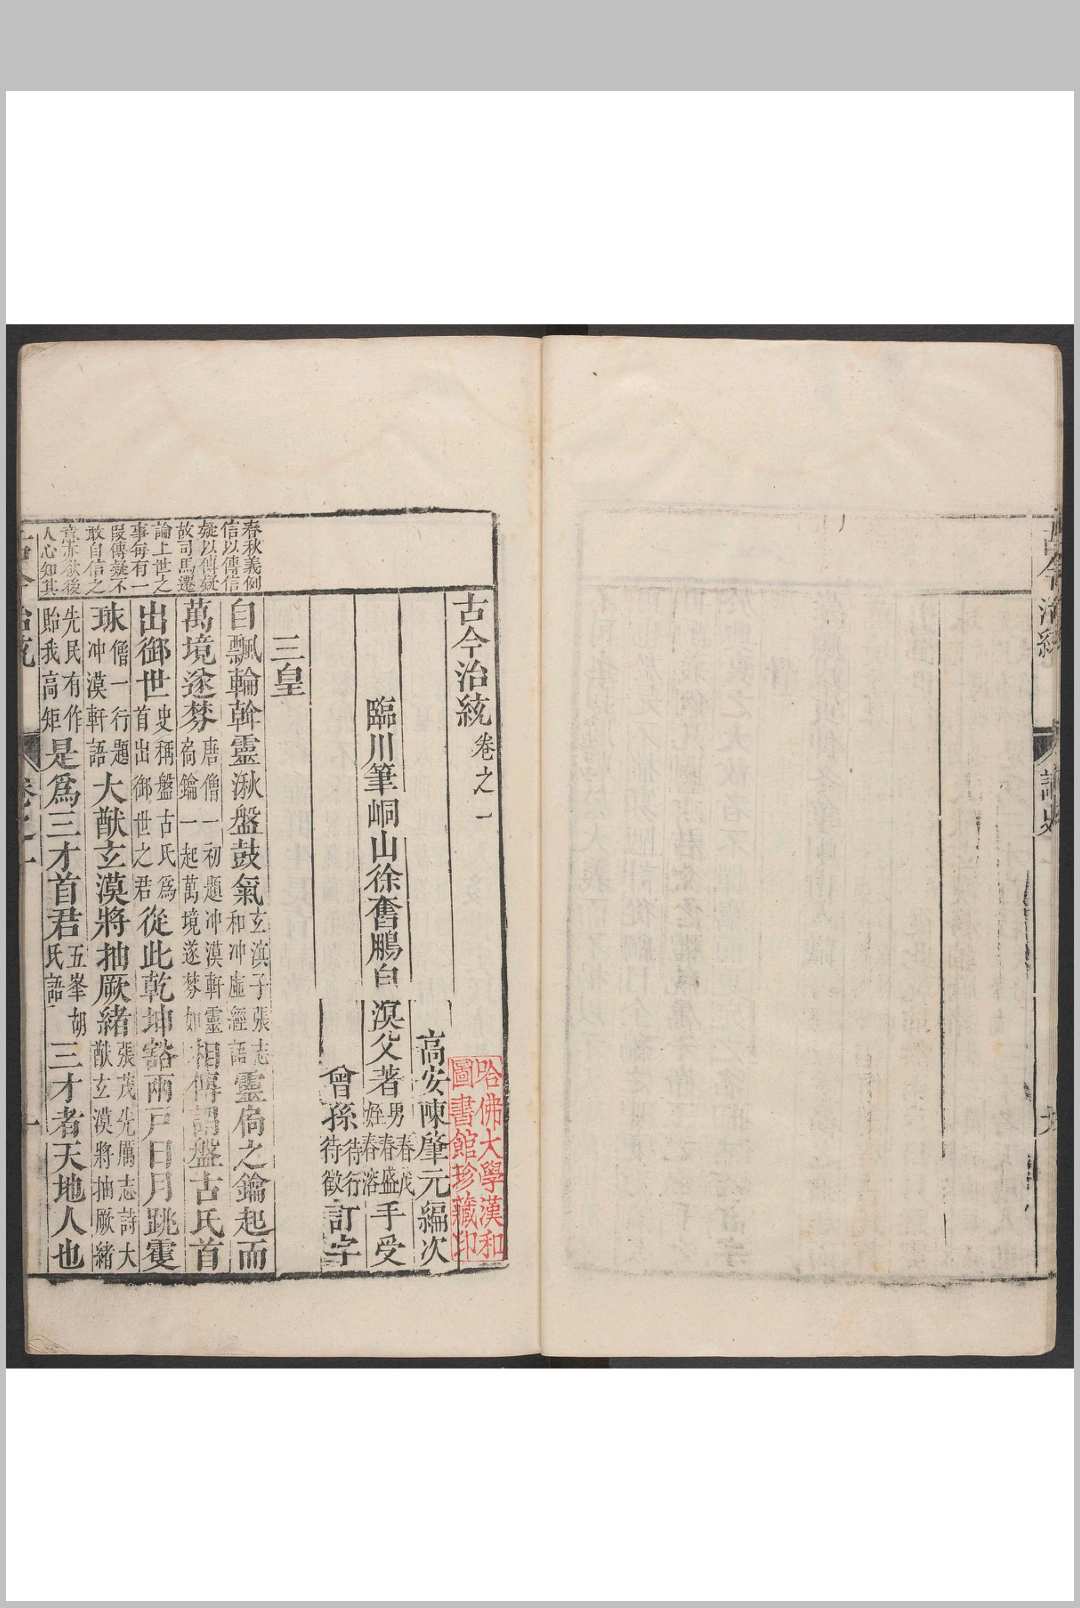 古今治統卷之一
高安陳肇元編次
臨川筆峒山徐奮鵬自溟父著
男春茂
姪春盛春溶
手受
曾孫待行待徵訂字
哈佛大學漢和圖書館珍藏印
三皇
自飄輪斡靈湫盤鼓氣玄滇子張志和冲虛經語靈扃之鑰起而
萬境遂棼唐僧一初題冲漠軒靈扃鑰一起萬境遂棼如相傳謂盤古氏首
出御世史稱盤古氏爲首出御世之君從此乾坤豁兩戸日月跳雙
球僧一行題冲漠軒語大猷玄漠將抽厥緒張茂先厲志詩大猷玄漠將抽厥緒
先民有作貽我高矩是爲三才首君五峯胡氏語三才者天地人也
春秋義例
信以傳信
疑以傳疑
故司馬遷
論上世之
事每有一
段傳疑不
敢自信之
意亦欲後
人心知其
古今治統
卷之一
一
古今治統